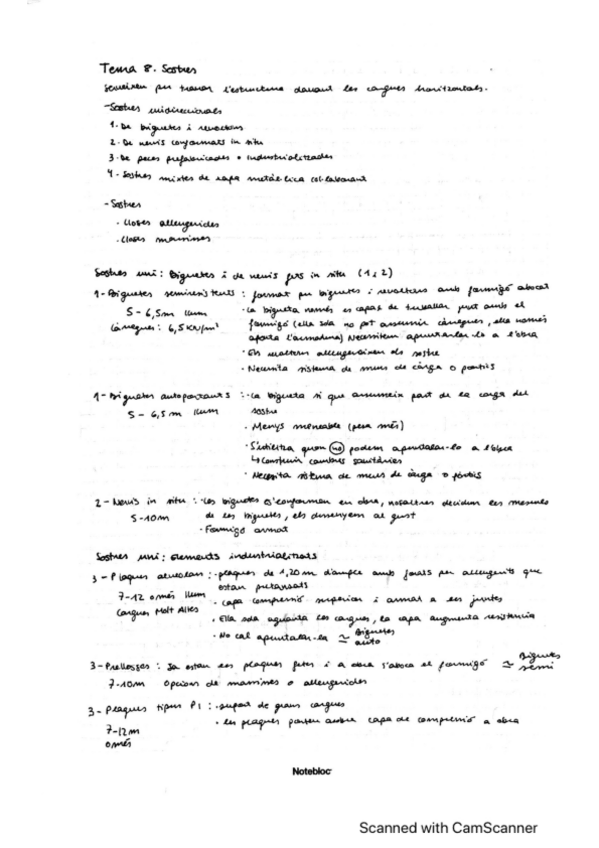 Tema 8. Sostres
serveixen per travar l'estructura davant les càrregues horitzontals.
- Sostres unidireccionals
1. De biguetes i revoltons
2. De nervis conformats in situ
3. De peces prefabricades o industrialitzades
4. Sostres mixtes de xapa metàl·lica col·laborant
- Sostres
· Lloses alleugerides
· Lloses massisses
Sostres uni: Biguetes i de nervis fets in situ (1 i 2)
1 - Biguetes semiresistents : format per biguetes i revoltons amb formigó abocat
5 - 6,5m llum · La bigueta només es capaç de treballar junt amb el
Càrregues: 6,5 KN/m² formigó (ella sola no pot assumir càrregues, ella només
aporta l'armadura) Necessitem apuntalar-lo a l'obra
· Els revoltons alleugereixen els sostre
· Necessita sistema de murs de càrga o pòrtics
1 - Biguetes autoportants : · La bigueta si que assumeix part de la carga del
5 - 6,5 m llum sostre
· Menys manejable (pesa més)
· S'utilitza quan no podem apuntalar-lo a l'obra
↳ Construir cambres sanitàries
· Necessita sistema de murs de càrga o pòrtics
2 - Nervis in situ : · Les biguetes s'conformen en obra, nosaltres decidim les mesures
5 - 10m de les biguetes, els dissenyem al gust
· Formigó armat
Sostres uni: Elements industrialitzats
3 - Plaques alveolars : · plaques de 1,20m d'ample amb forats per alleugerits que
7-12 o més llum estan pretensats
Càrgues Molt Altes · Capa compressió superior i armar a les juntes
· Ella sola aguanta les càrgues, la capa augmenta resistència
· No cal apuntalar-la ≃ Biguetes auto
3 - Prelloses : Ja estan les plaques fetes i a obra s'aboca el formigó ≃ Biguetes semi
7-10m Opcions de massisses o alleugerides
3 - Plaques tipus Pi : · suport de grans càrgues
7-12m · les plaques porten sobre capa de compressió a obra
o més
Notebloc
Scanned with CamScanner